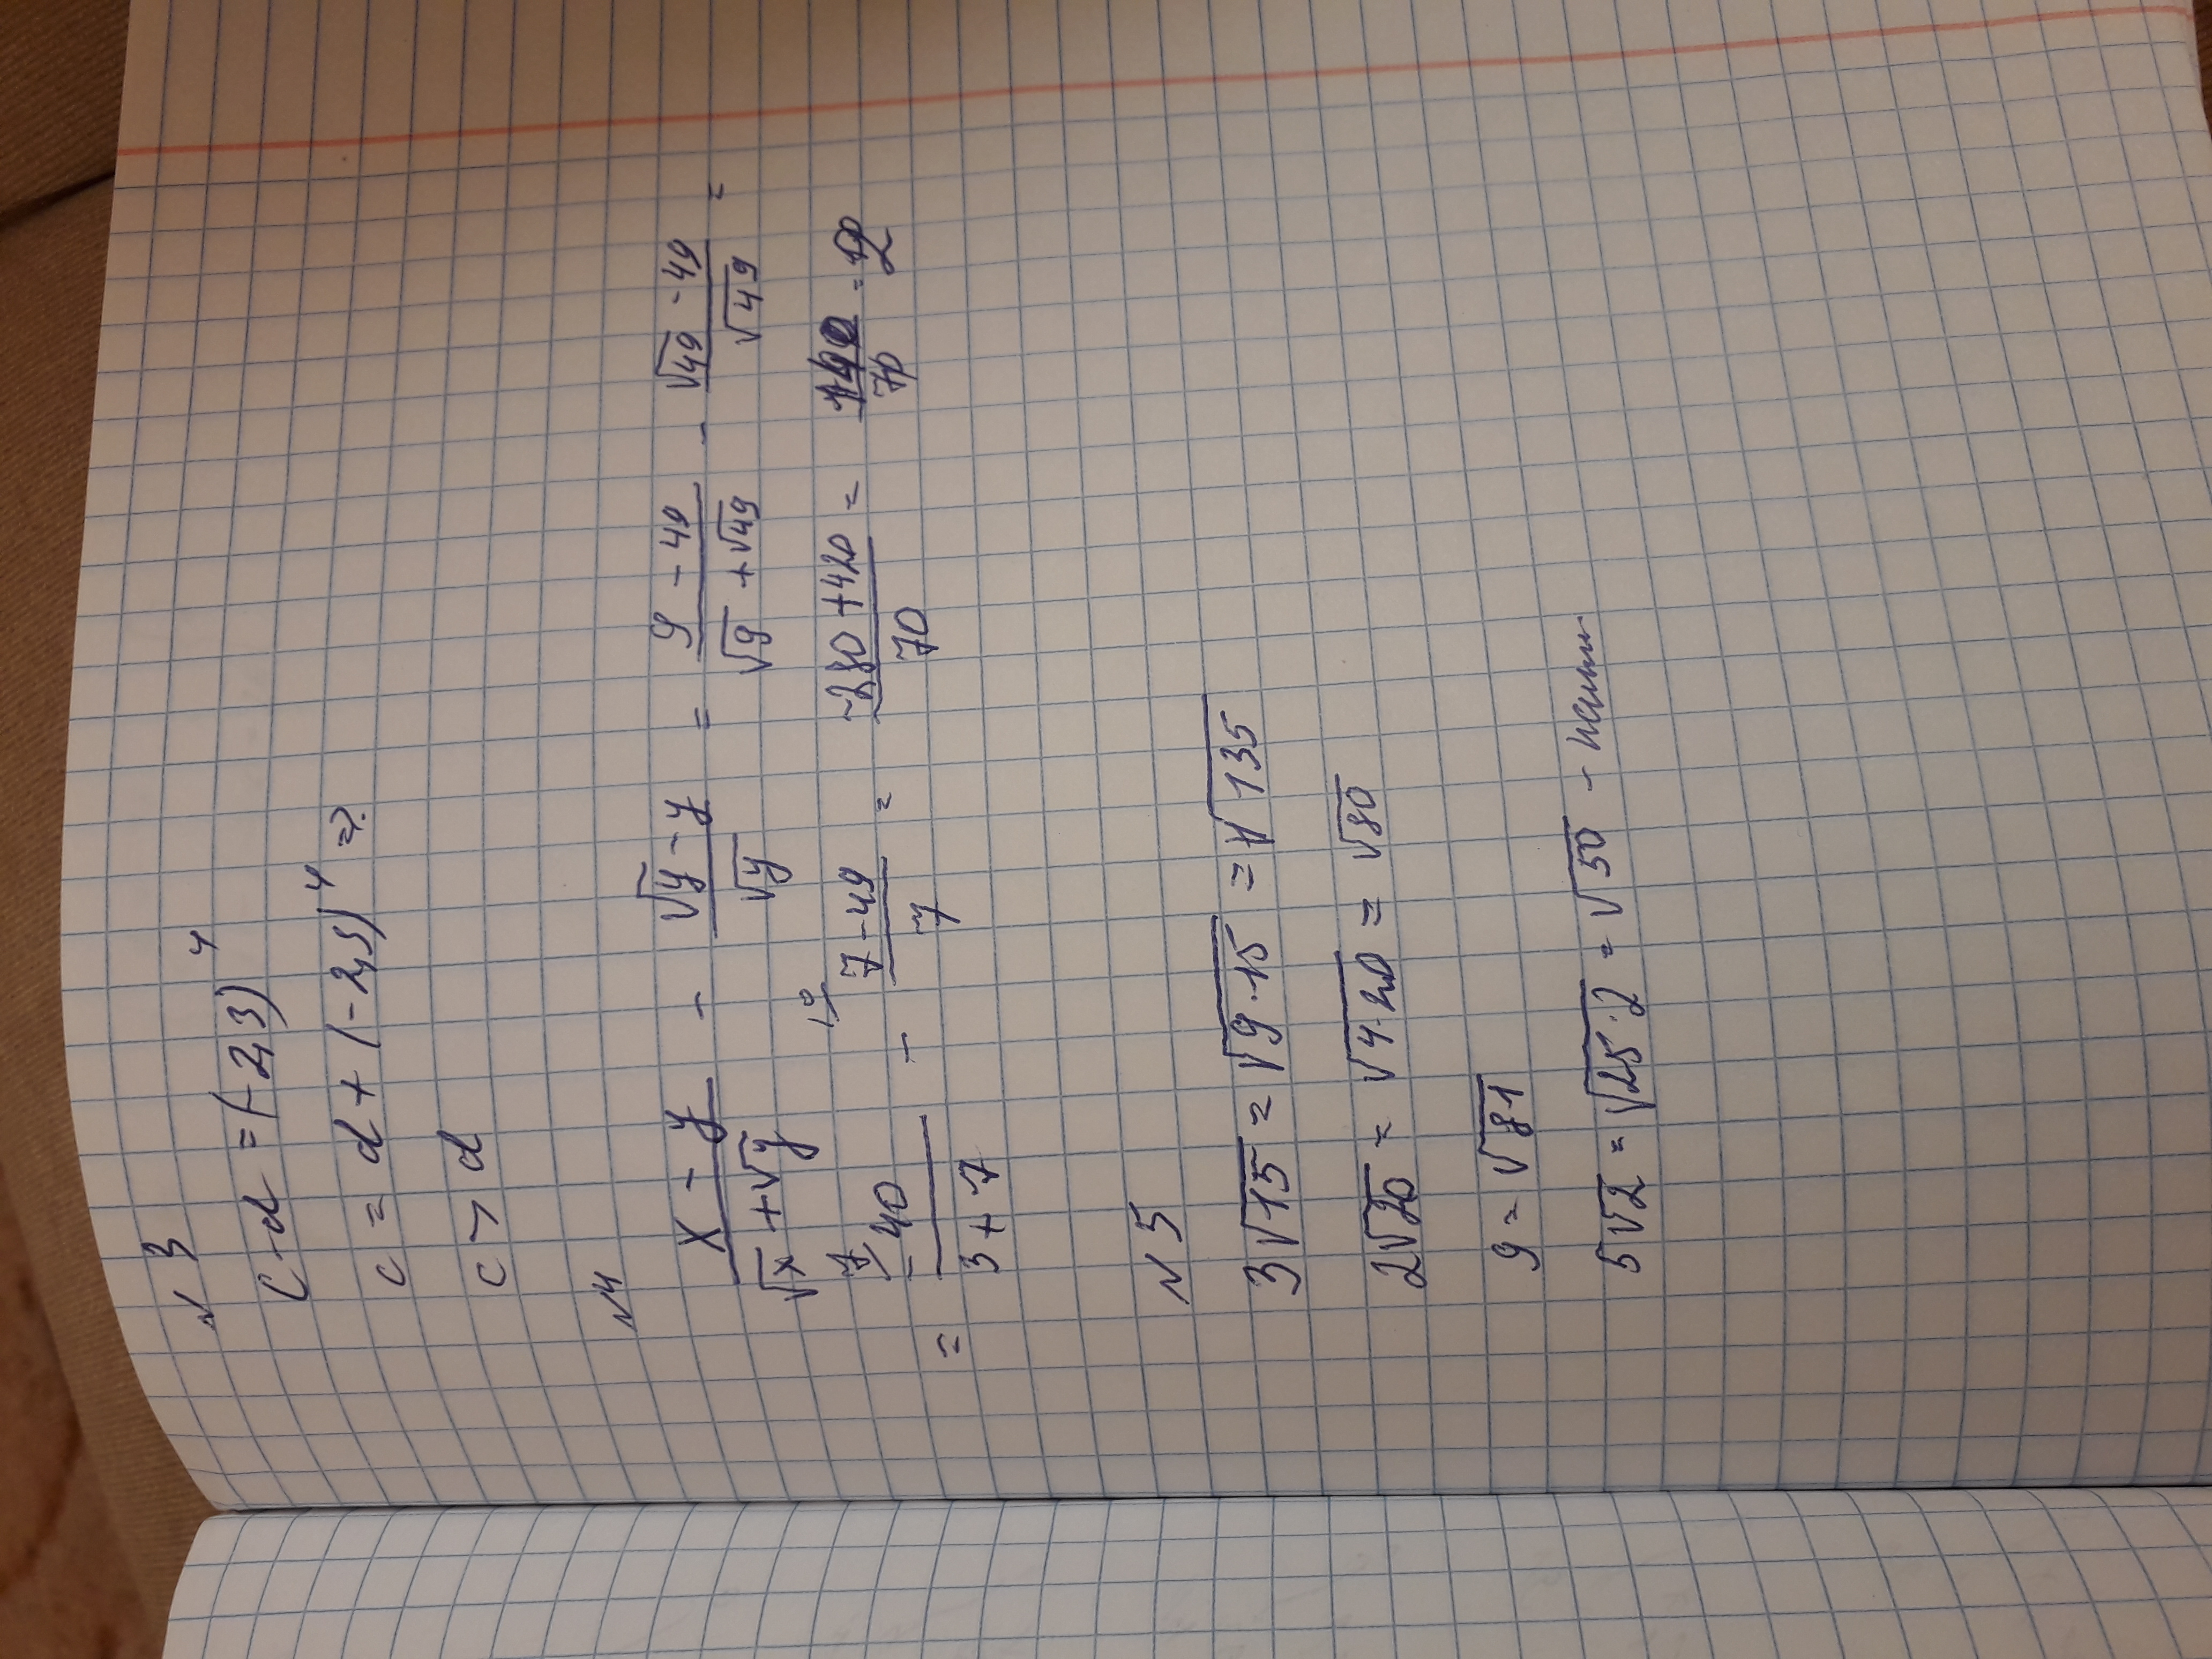 N 3
c - d = (-2,3)⁴
c = d + (-2,3)⁴ =>
c > d
N4
(x - y)/(√x + √y) - (√y - y)/√y = (9 - 49)/(√9 + √49) - (√49 - 49)/√49 =
= (-40)/(3 + 7) - (7 - 49)/7 = (-280 + 420)/70 = 140/70 = 2
N 5
3√15 = √9·15 = √135
2√20 = √4·20 = √80
9 = √81
5√2 = √25·2 = √50 -